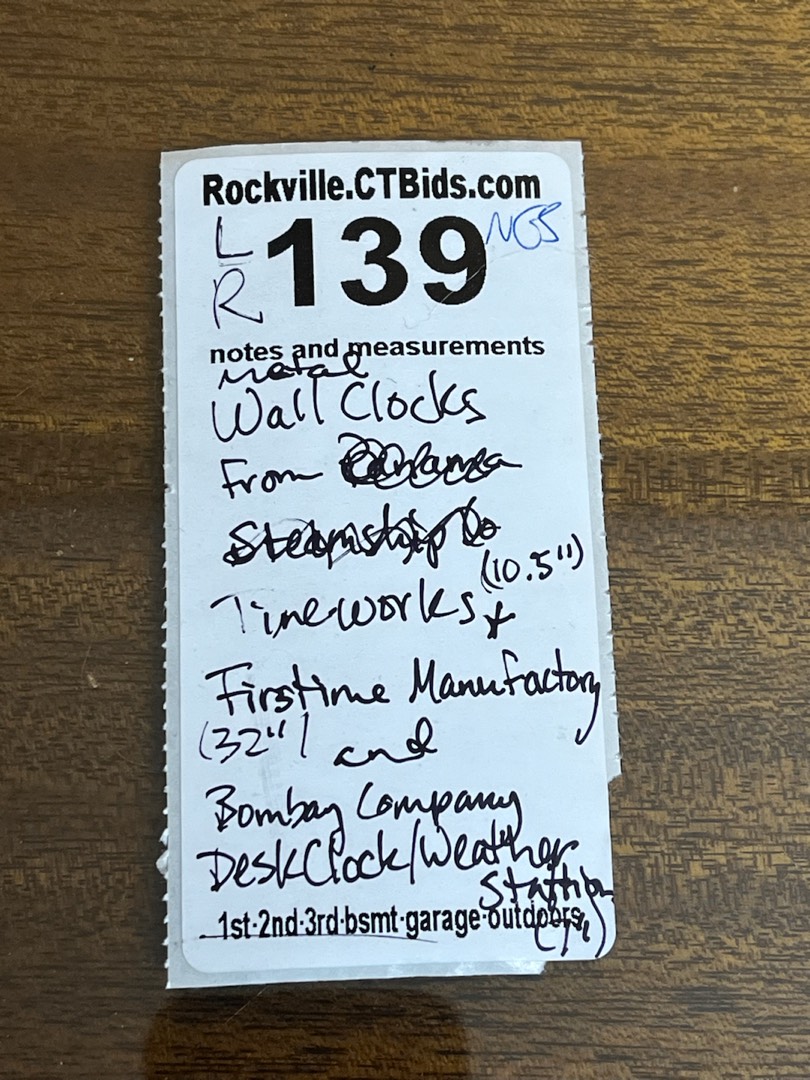 Rockville.CTBids.com
L 139 NGS
R
notes and measurements
Metal
Wall Clocks
From
Steamship Co
(10.5")
Timeworks +
Firstime Manufactory
(32") and
Bombay Company
Desk Clock/Weather
Station
1st·2nd·3rd·bsmt·garage·outdoors